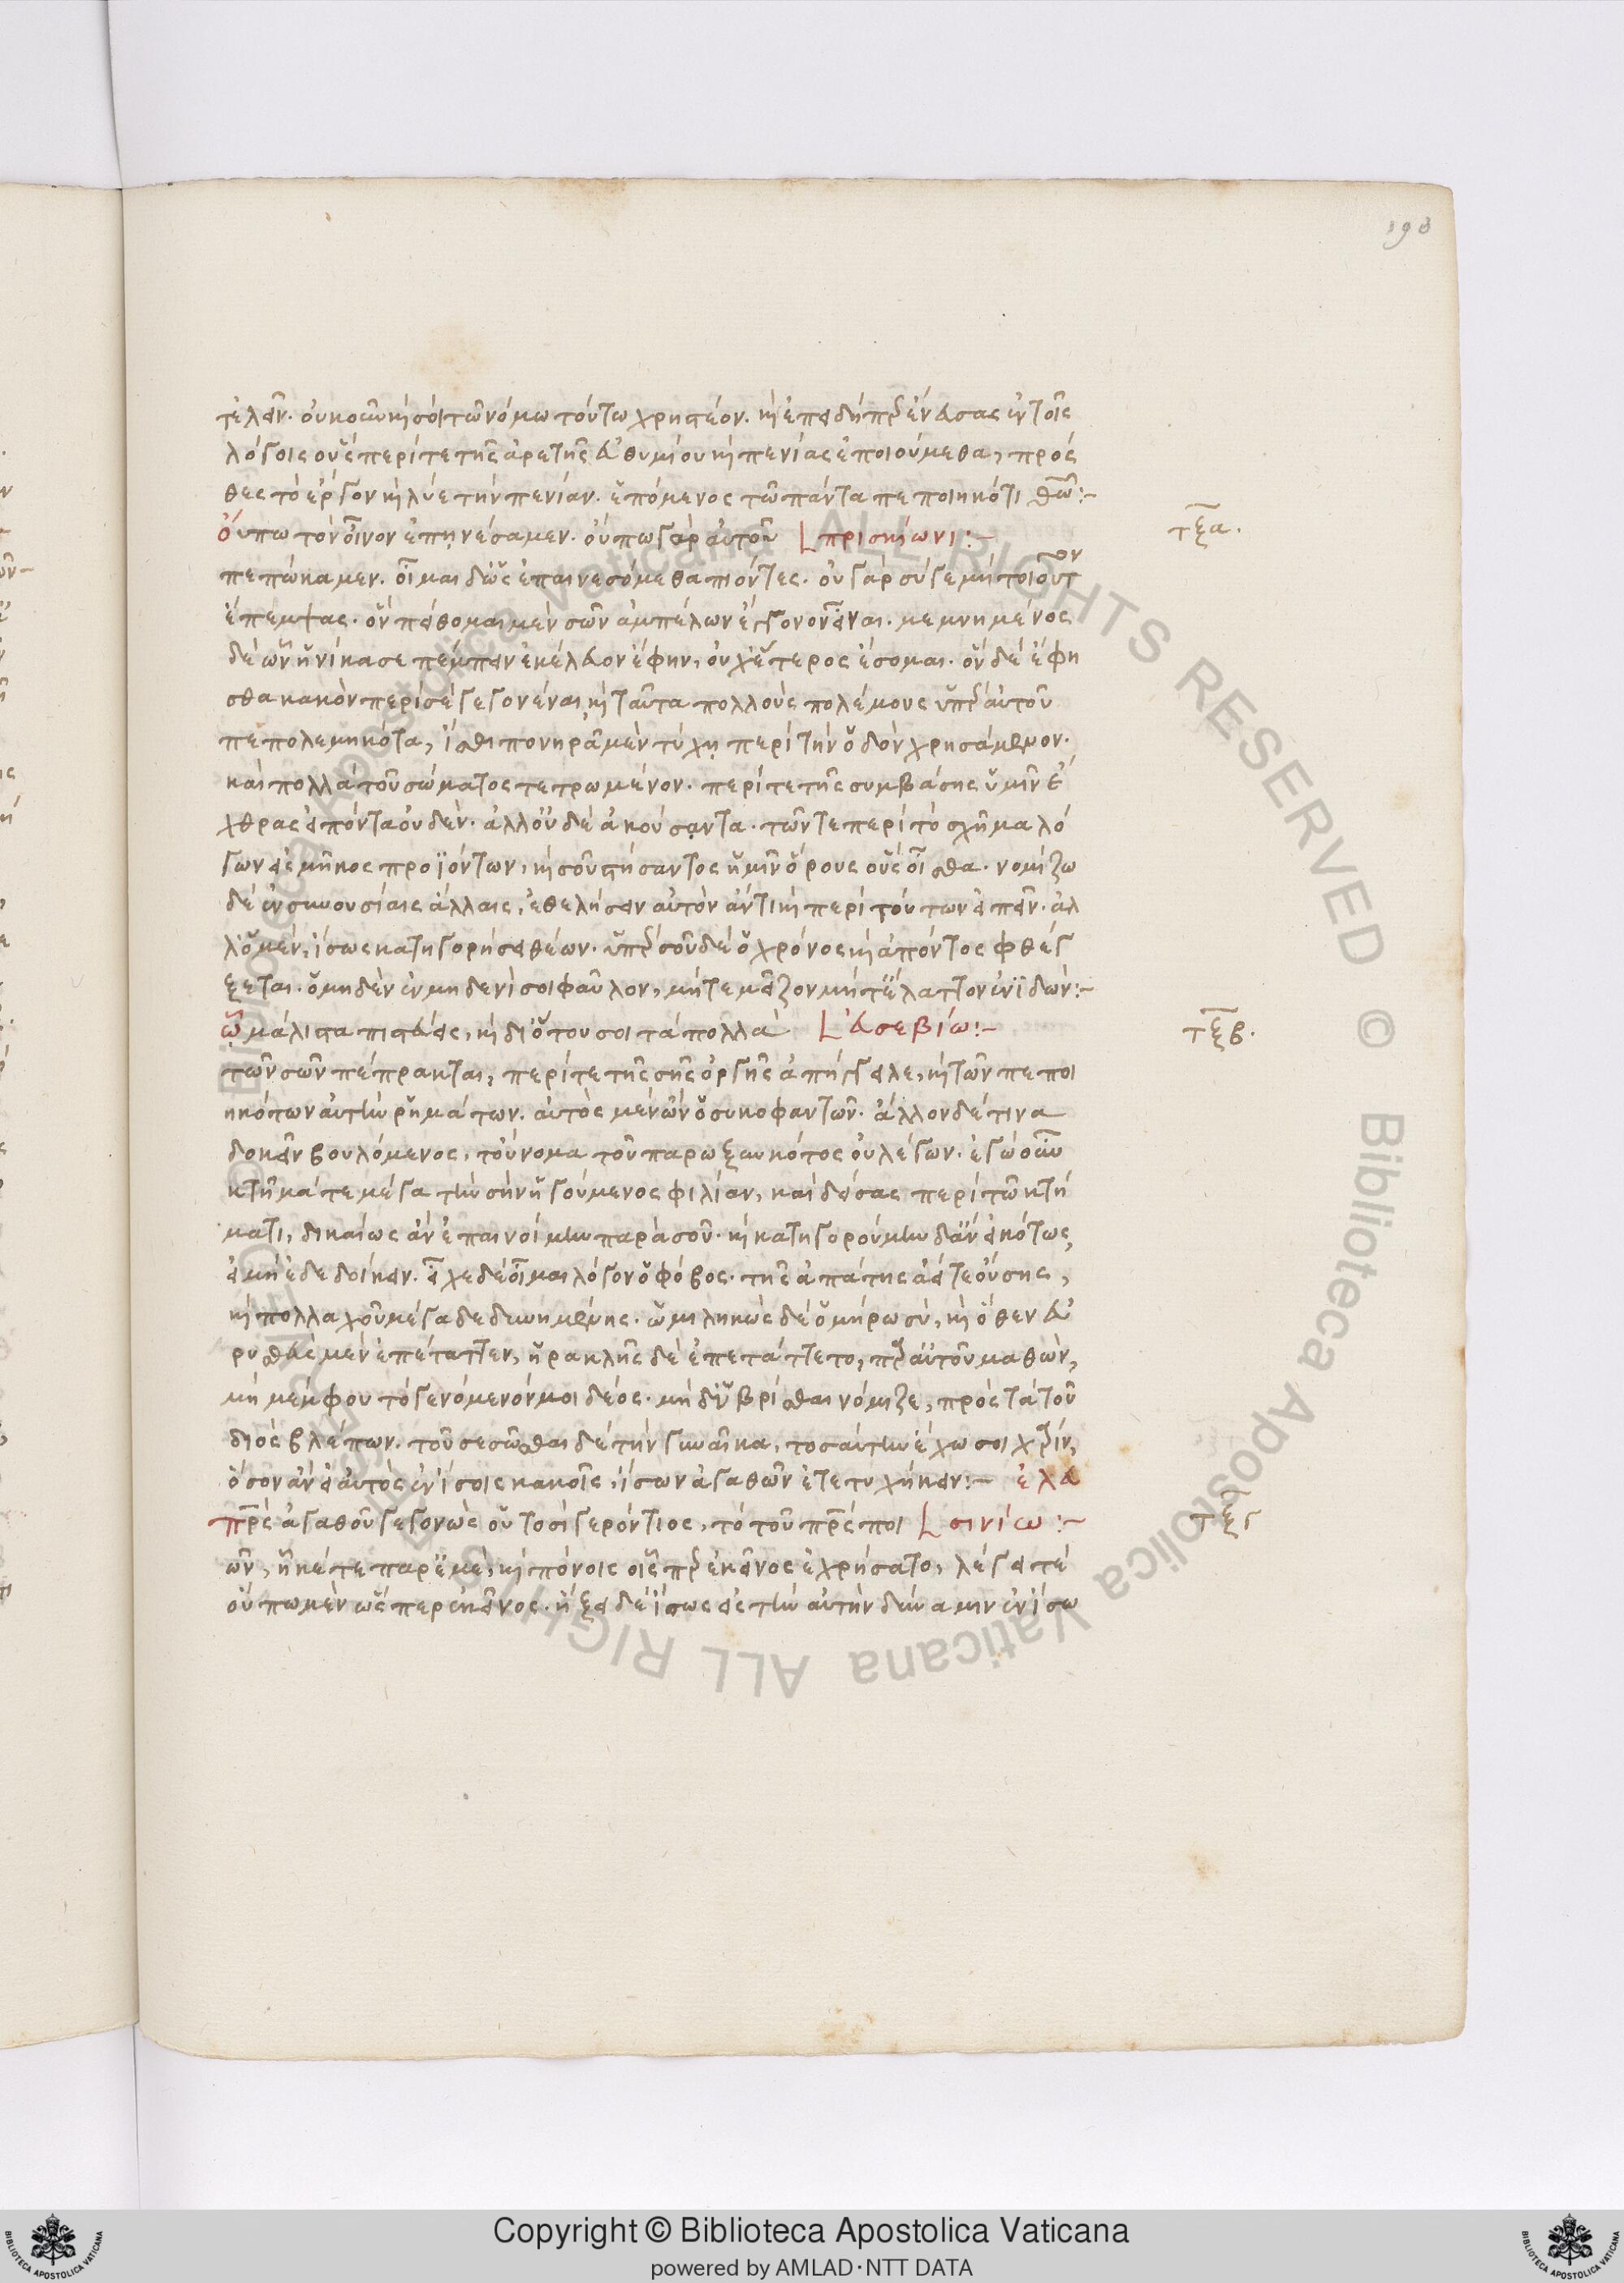 198
τελεῖν. οὐκοῦν καὶ σοὶ τῶ νόμω τούτω χρηστέον. καὶ ἐπειδήπερ ἐνεύσας ἐν τοῖς
λόγοις οὓς περί τε τῆς ἀρετῆς εὐθυμίου καὶ πενίας ἐποιούμεθα, πρός
θες τὸ ἔργον καὶ λύε τὴν πενίαν. ἑπόμενος τῶ πάντα πεποιηκότι θεῶ:-
οὔπω τὸν οἶνον ἐπῃνέσαμεν. οὔπω γὰρ αὐτοῦ πρισκίωνι:-
τξα.
πεπώκαμεν. οἶμαι δ' ὡς ἐπαινεσόμεθα πιόντες. οὐ γὰρ σύ γε μὴ τοιοῦτον
ἔπεμψας. ὃν πείθομαι μὲν σῶν ἀμπέλων ἔγγονον εἶναι. μεμνημένος
δὲ ὧν ἡνίκα σε πέμπειν ἐκέλευον ἔφην, οὐχ ἕτερος ἔσομαι. ὃν δὲ ἔφη
σθα κακὸν περὶ σὲ γεγονέναι, καὶ ταῦτα πολλοὺς πολέμους ὑπὲρ αὐτοῦ
πεπολεμηκότα, ἴσθι πονηρᾶ μὲν τύχῃ περὶ τὴν ὁδὸν χρησάμενον.
καὶ πολλὰ τοῦ σώματος τετρωμένον. περί τε τῆς συμβάσης ὑμῖν ἔ
χθρας εἰπόντα οὐδὲν. ἀλλ' οὐδὲ ἀκούσαντα. τῶν τε περὶ τὸ σχῆμα λό
γων εἰς μῆκος προϊόντων, καὶ σοῦ στήσαντος ἡμῖν ὅρους οὓς οἶσθα. νομίζω
δὲ ἐν συνουσίαις ἄλλαις, ἐθελήσειν αὐτὸν ἀντὶ καὶ περὶ τούτων εἰπεῖν. ἀλ
λ' ὁ μὲν, ἴσως κατηγορήσει θέων. ὑπὲρ σοῦ δὲ ὁ χρόνος καὶ ἀπόντος φθέγ
ξεται. ὁ μηδὲν ἐν μηδενί σοι φαῦλον, μήτε μεῖζον μήτ' ἔλαττον ἐνιδών:-
ᾧ μάλιστα πιστεύεις, καὶ δι' ὅτου σοι τὰ πολλὰ εὐσεβίω:-
τξβ.
τῶν σῶν πέπρακται, περί τε τῆς σῆς ὀργῆς ἀπήγγειλε, καὶ τῶν πεποι
ηκότων αὐτὴν ῥημάτων. αὐτὸς μὲν ὢν ὁ συκοφαντῶν. ἄλλον δέ τινα
δοκεῖν βουλόμενος, τοὔνομα τοῦ παρωξυνκότος οὐ λέγων. ἐγὼ οὖν
κτῆμά τε μέγα τὴν σὴν ἡγούμενος φιλίαν, καὶ δείσας περὶ τῶ κτή
ματι, δικαίως ἂν ἐπαινοίμην παρὰ σοῦ. καὶ κατηγορούμην δ' ἂν εἰκότως,
εἰ μὴ ἐδεδοίκειν. εἶχε δὲ οἶμαι λόγον ὁ φόβος. τῆς ἀπάτης ἀεί τε οὔσης,
καὶ πολλαχοῦ μέγα δεδυνημένης. ὡμιληκὼς δὲ ὁμήρω σὺ, καὶ ὅθεν εὐ
ρυσθεὺς μὲν ἐπέταττεν, ἡρακλῆς δὲ ἐπετάττετο, παρ' αὐτοῦ μαθὼν,
μὴ μέμφου τὸ γενόμενόν μοι δέος. μὴ δ' ὑβρίσθαι νόμιζε, πρὸς τὰ τοῦ
διὸς βλέπων. τοῦ σεσῶσθαι δὲ τὴν γυναῖκα, τοσαύτην ἔχω σοι χάριν,
ὅσον ἂν εἰ αὐτὸς ἐν ἴσοις κακοῖς, ἴσων ἀγαθῶν ἐτετυχήκειν:- ἐλευ
πατρὸς ἀγαθοῦ γεγονὼς οὑτοσὶ γερόντιος, τὸ τοῦ πατρός ποι σινίω:-
τξγ
ῶν, ἧκέ τε παρ' ἐμὲ, καὶ πόνοις οἷσπερ ἐκεῖνος ἐχρήσατο, λέγει τέ
οὔπω μὲν ὥσπερ ἐκεῖνος. ἥξει δὲ ἴσως εἰς τὴν αὐτὴν δύναμιν ἐν ἴσω
Copyright © Biblioteca Apostolica Vaticana
powered by AMLAD・NTT DATA